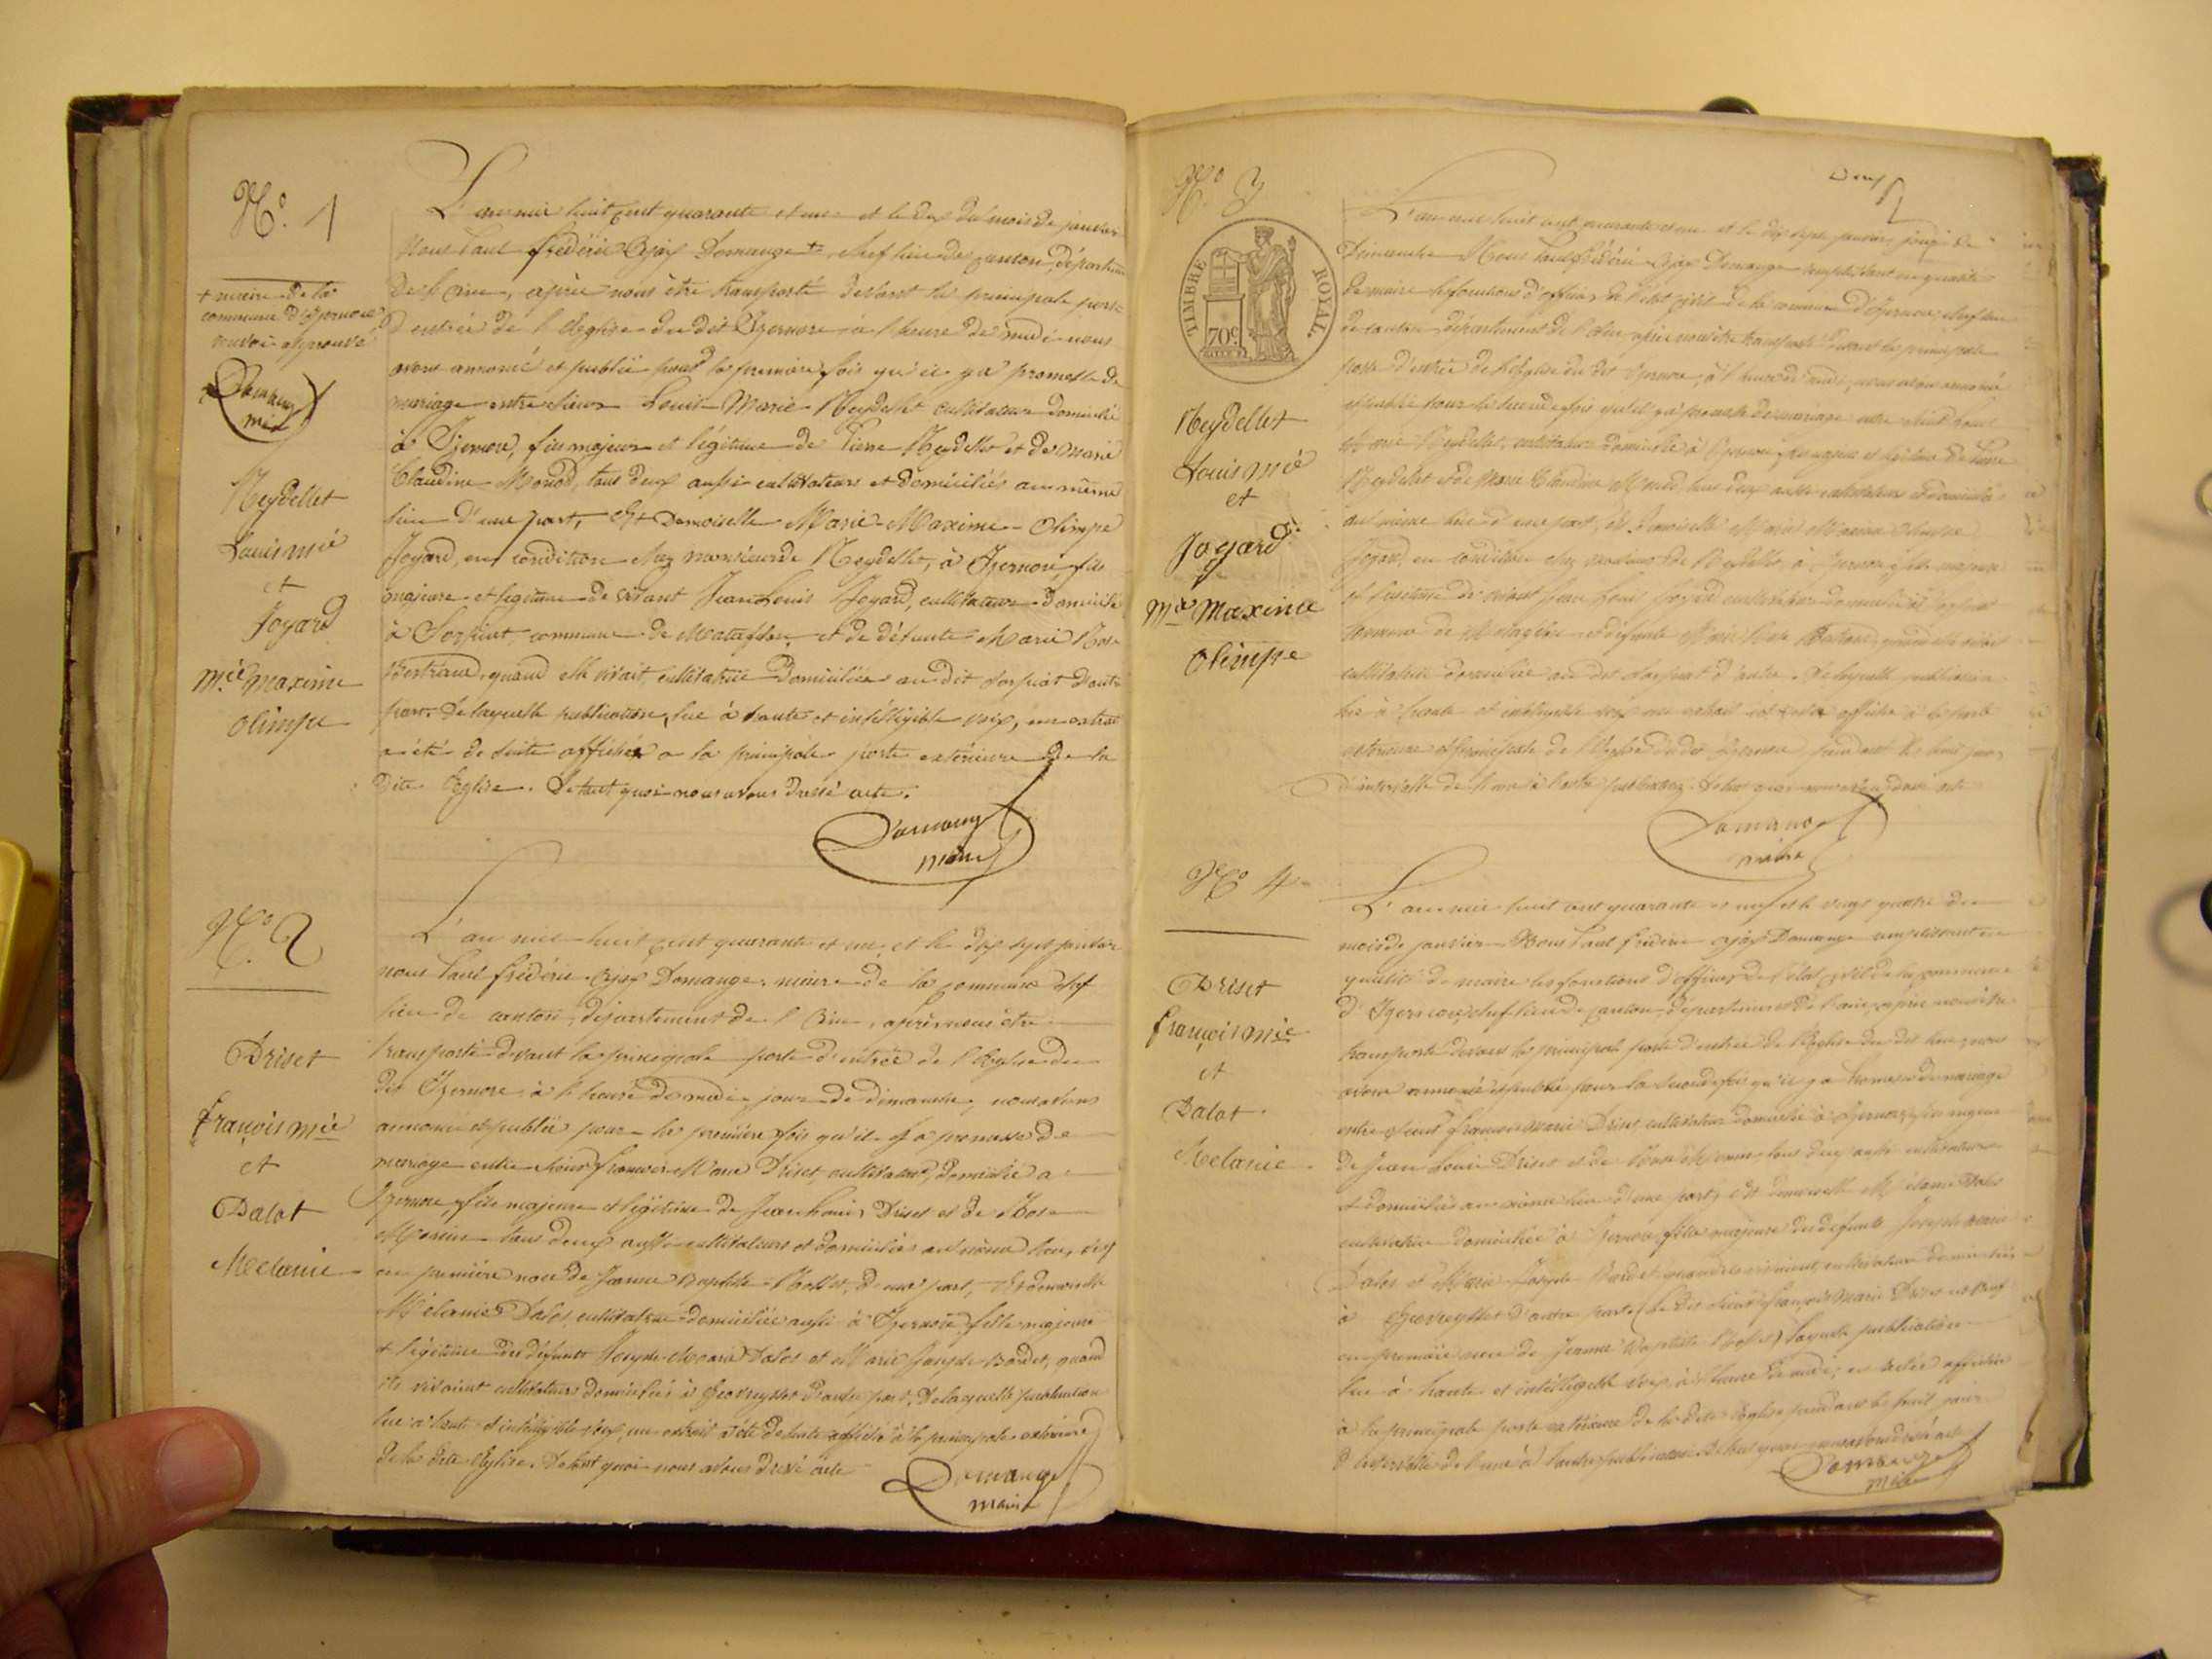 N.º 1
+ maire de la
commune d'Izernore
renvoi approuvé
Domange
maire
Neydellet
Louis Mie
et
Joyard
Mie Maxime
Olimpe
L'an mil huit cent quarante et un et le dix du mois de janvier
Nous Paul frédéric Ajax Domange + chef lieu de canton, département
de l'ain, après nous être transporté devant la principale porte
d'entrée de l'Eglise du dit Izernore à l'heure de midi nous
avons annoncé et publié pour la premiere fois qu'il y a promesse de
mariage entre sieur Louis-Marie Neydellet cultivateur domicilié
à Izernore, fils majeur et légitime de Pierre Neydellet et de Marie
Claudine Monod, tous deux aussi cultivateurs et domiciliés au même
lieu d'une part, Et Demoiselle Marie-Maxime-Olimpe
Joyard, en condition chez monsieur de Neydellet, à Izernore, fille
majeure et légitime de vivant Jean Louis Joyard, cultivateur domicilié
à Sorpiat commune de Matafelon et de défunte Marie Rose
Bertrand, quand elle vivait, cultivatrice domiciliée au dit Sorpiat d'autre
part. De laquelle publication, lue à haute et intelligible voix, un extrait
a été de suite affiché a la principale porte extérieure de la
dite Eglise. De tout quoi nous avons dressé acte.
Domange
maire
N.º 2
Driset
françois Mie
et
Dalot
Mélanie
L'an mil huit cent quarante et un et le dix sept janvier
nous Paul frédéric Ajax Domange, maire de la commune chef
lieu de canton, département de l'Ain, après nous être
transporté devant la principale porte d'entrée de l'Eglise du
dit Izernore à l'heure de midi jour de dimanche, nous avons
annoncé et publié pour la première fois qu'il y a promesse de
mariage entre sieur françois Marie Driset, cultivateur, domicilié à
Izernore fils majeur et légitime de Jean Louis Driset et de Rose
tous deux aussi cultivateurs et domiciliés au même lieu, veuf
en première noce de Jeanne Baptiste d'une part, Et demoiselle
Mélanie Dalot, cultivatrice domiciliée aussi à Izernore fille majeure
et légitime des défunts Joseph Marie Dalot et Marie Josephe Bardet, quand
ils vivaient cultivateurs domiciliés à Geovreysset d'autre part. De laquelle publication
lue à haute et intelligible voix, un extrait a été de suite affiché à la principale extérieure
de la dite Eglise. De tout quoi nous avons dressé acte
Domange
maire
deux
N.º 3
TIMBRE ROYAL.
70c.
Neydellet
Louis Mie
et
Joyard
Mie Maxime
Olimpe
L'an mil huit cent quarante et un et le dix sept janvier jour de
Dimanche Nous Paul frédéric Ajax Domange remplissant en qualité
de maire les fonctions d'officier de l'état civil de la commune d'Izernore, chef lieu
de canton département de l'Ain après nous être transporté devant la principale
porte d'entrée de l'Eglise du dit Izernore, à l'heure de midi, nous avons annoncé
et publié pour la seconde fois qu'il y a promesse de mariage entre sieur Louis
Marie Neydellet, cultivateur domicilié à Izernore, fils majeur et légitime de Pierre
Neydellet et de Marie Claudine Monod, tous deux aussi cultivateurs et domiciliés
au même lieu d'une part, Et Demoiselle Marie Maxime Olimpe
Joyard, en condition chez monsieur de Neydellet, à Izernore, fille majeure
et légitime de vivant Jean Louis Joyard cultivateur domicilié à Sorpiat
commune de Matafelon et défunte Marie Rose Bertrand, quand elle vivait
cultivatrice domiciliée au dit Sorpiat d'autre. De laquelle publication
lue à haute et intelligible voix un extrait est resté affiché à la porte
extérieure et principale de l'Eglise du dit Izernore pendant les huit jours
d'intervalle de l'une à l'autre publication. De tout quoi nous avons dressé acte
Domange
maire
N.º 4
Driset
françois Mie
et
Dalot
Mélanie
L'an mil huit cent quarante et un et le vingt quatre du
mois de janvier Nous Paul frédéric Ajax Domange remplissant en
qualité de maire les fonctions d'officier de l'état civil de la commune
d'Izernore, chef lieu de canton département de l'ain, après nous être
transporté devant la principale porte d'entrée de l'Eglise du dit lieu, nous
avons annoncé et publié pour la seconde fois qu'il y a promesse de mariage
entre sieur françois Marie Driset cultivateur domicilié à Izernore, fils majeur
de Jean Louis Driset et de Rose tous deux aussi cultivateurs
et domiciliés au même lieu d'une part, Et demoiselle Mélanie Dalot
cultivatrice domiciliée à Izernore fille majeure des défunts Joseph Marie
Dalot et Marie Josephe Bardet quand ils vivaient, cultivateurs domiciliés
à Geovreysset d'autre part (le dit sieur françois Marie Driset est veuf
en première noce de Jeanne Baptiste) laquelle publication
lue à haute et intelligible voix, à l'heure de midi, est restée affichée
à la principale porte extérieure de la dite Eglise pendant les huit jours
d'intervalle de l'une à l'autre publication. De tout quoi nous avons dressé acte
Domange
maire